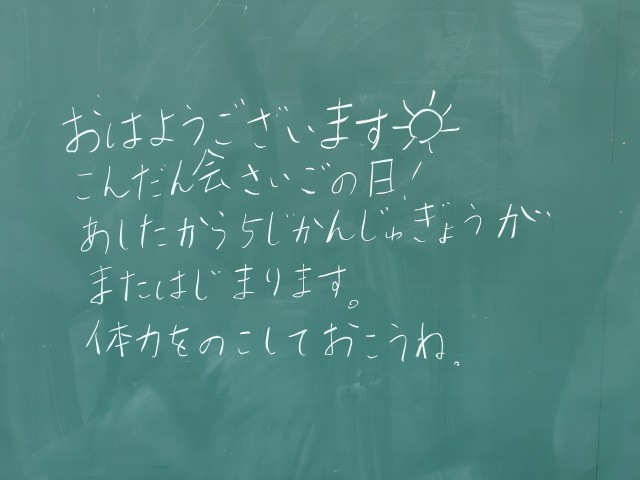 おはようございます
こんだん会さいごの日!
あしたから5じかんじゅぎょうが
またはじまります。
体力をのこしておこうね。